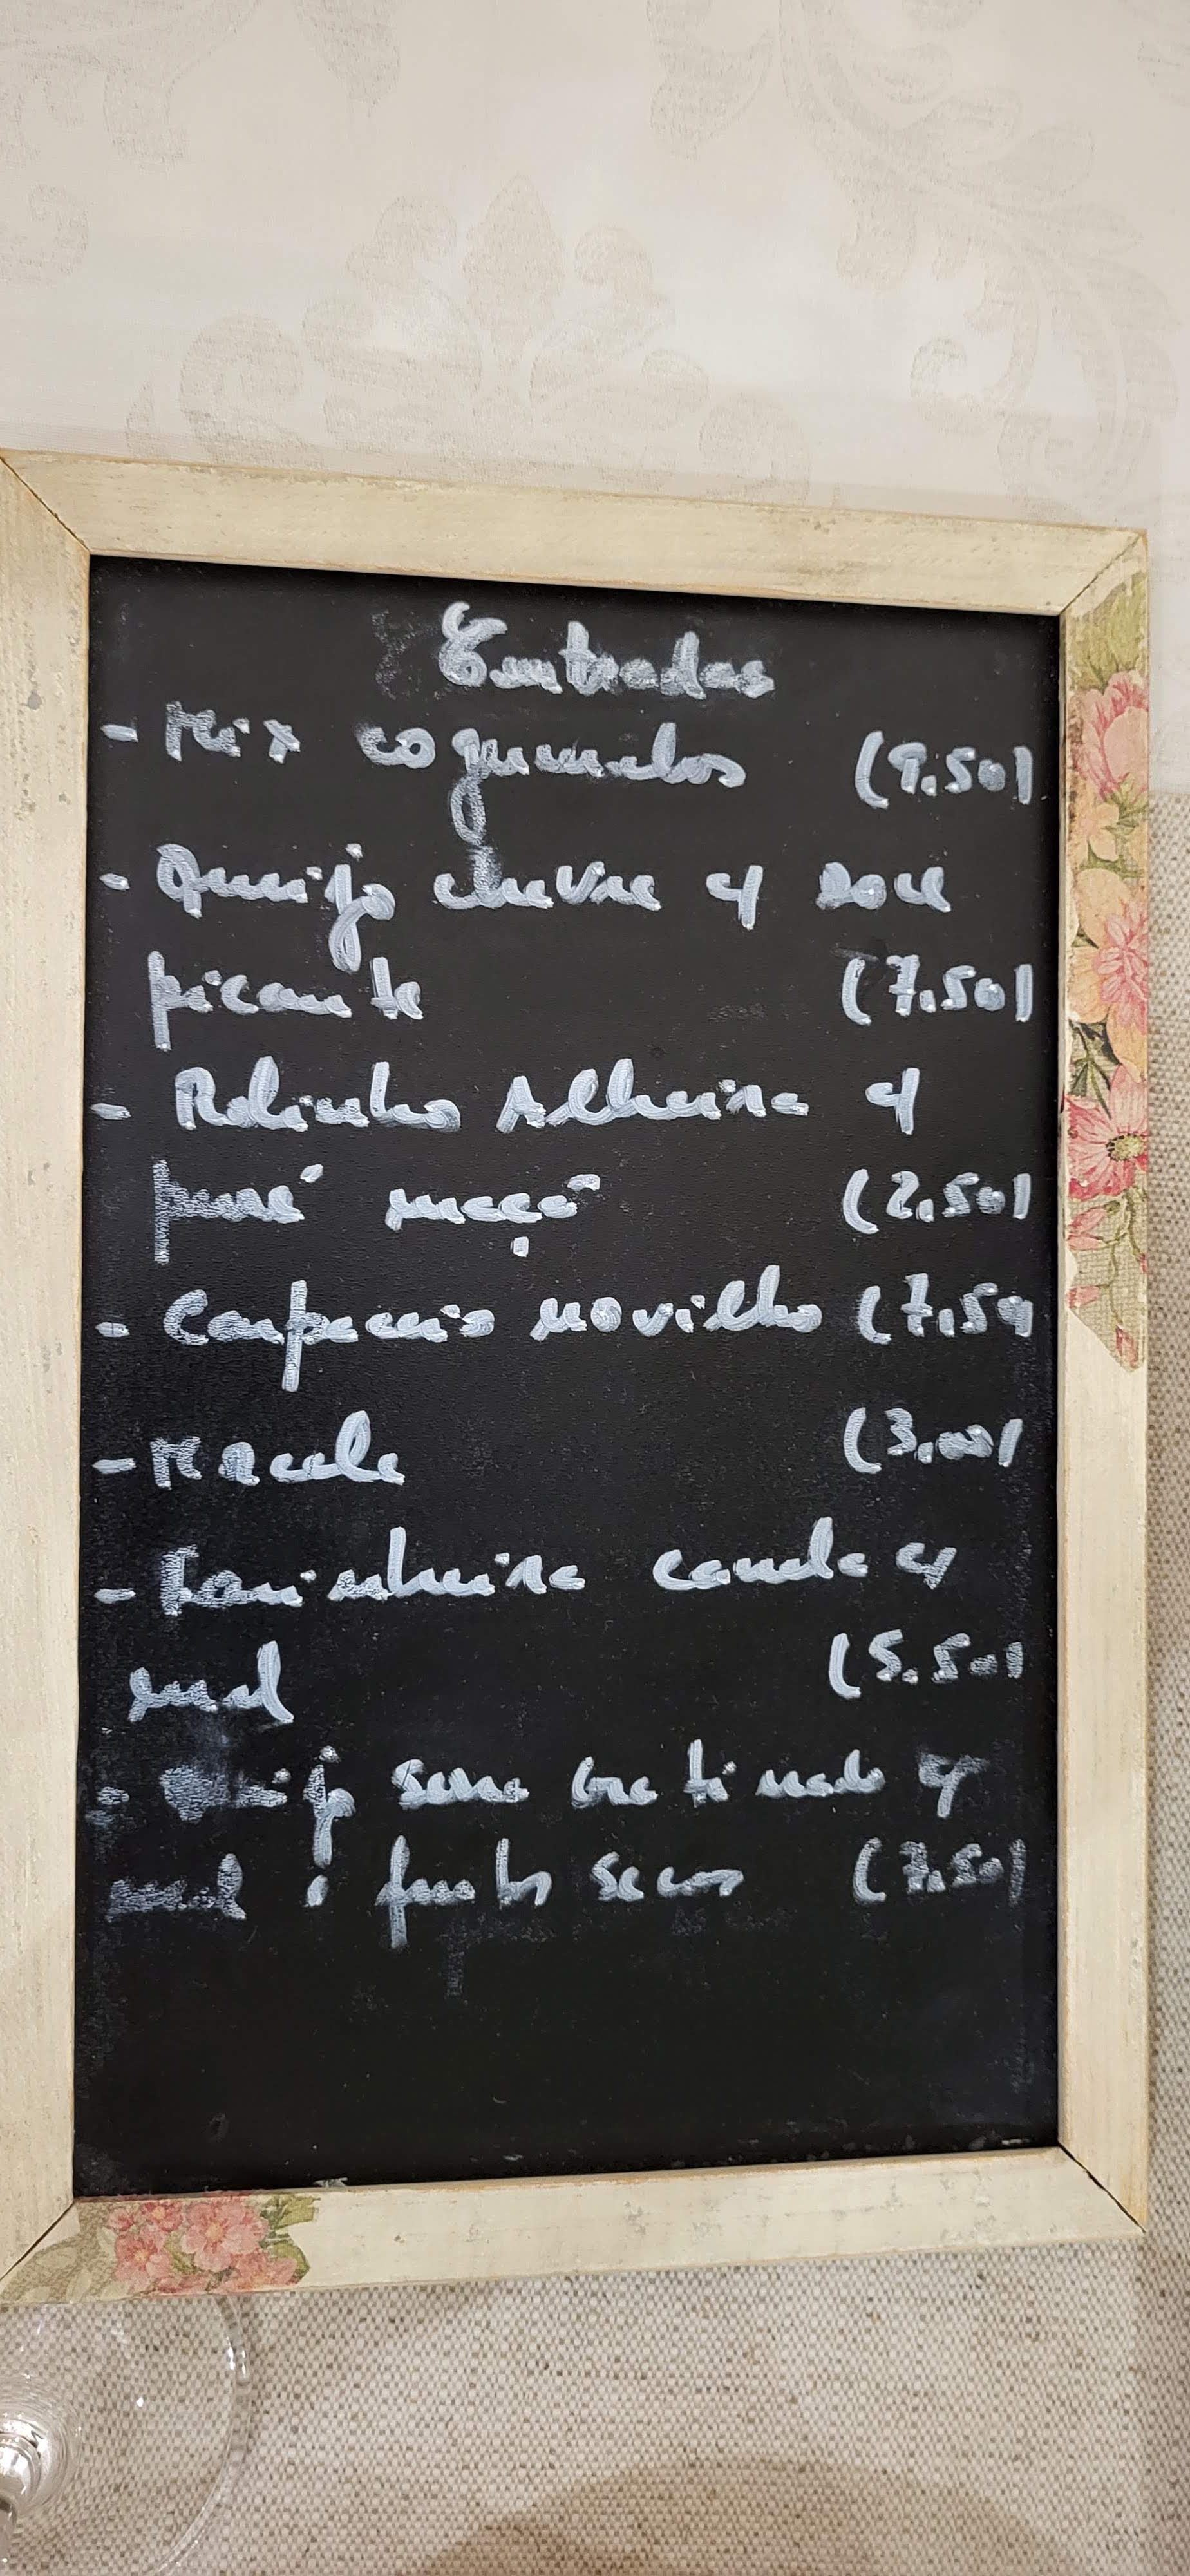 Entradas
- Mix cogumelos (9.50)
- Queijo chevre c/ doce
picante (7.50)
- Rolinho Alheira c/
puré maçã (2,50)
- Carpaccio novilho (7,50
(3,00)
- Farinheira canela c/
mel (5.50)
- Queijo serra gratinado c/
mel e frutos secos (7.50)